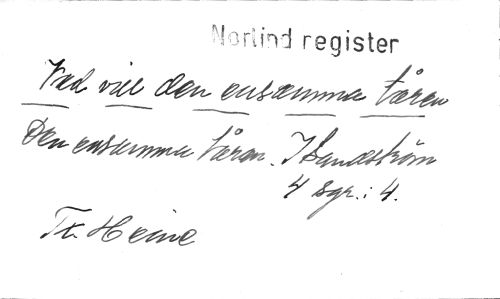 Norlind register
Vad vill den ensamma tåren
Den ensamma tåren. I Sandström
4 sgr. : 4.
Tx. Heine